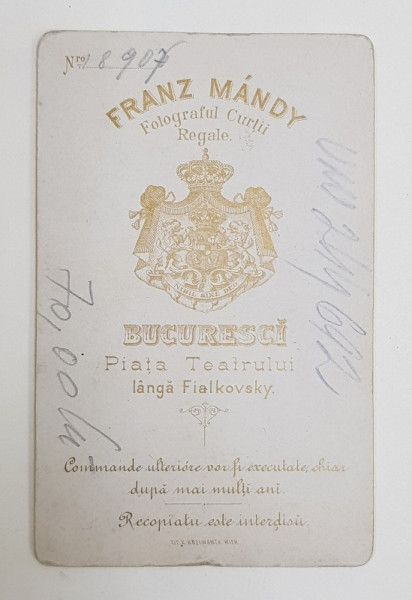 Nro. 18907
FRANZ MÁNDY
Fotograful Curţii
Regale.
NIHIL SINE DEO
BUCURESCĬ
Piaţa Teatrului
lângă Fialkovsky.
Commande ulterióre vor fi executate, chiar
după mai mulţi ani.
Recopiatu este interdisŭ.
70,00 lei